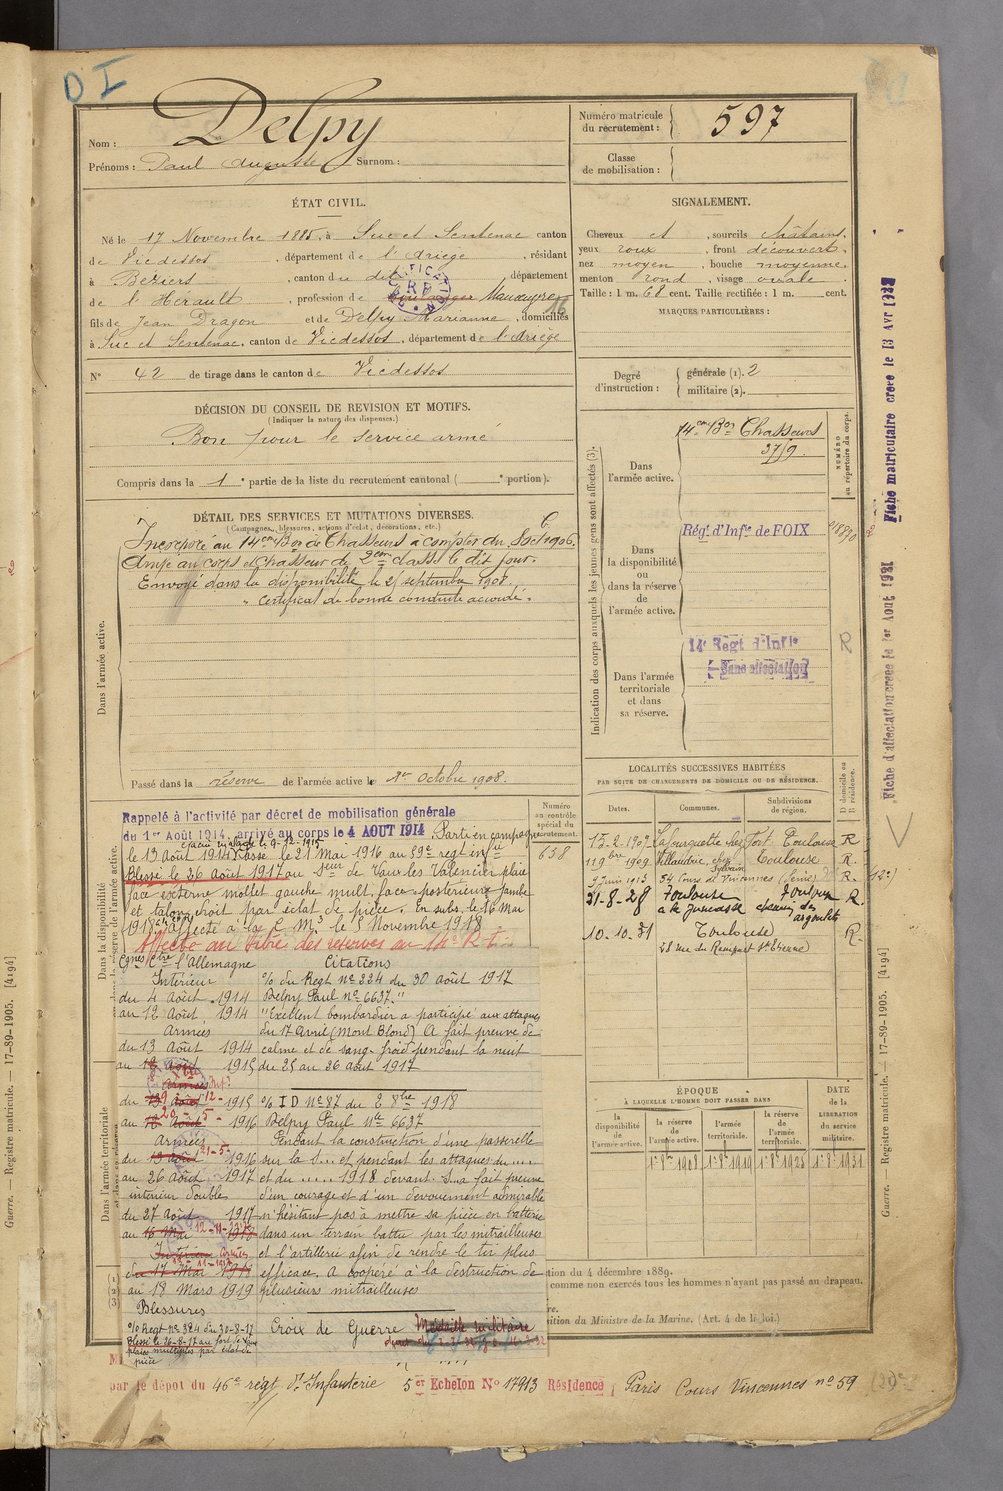 D I
Nom : Delpy
Prénoms : Paul Auguste Surnom :
Numéro matricule du recrutement : 597
Classe de mobilisation :
ÉTAT CIVIL.
Né le 17 Novembre 1885, à Suc et Sentenac canton
de Vicdessos , département de l'Ariège , résidant
à Beziers , canton du dit , département
de l'Hérault , profession de Manœuvre
fils de Jean Dragon et de Delpy Marianne , domiciliés
à Suc et Sentenac, canton de Vicdessos , département de l'Ariège
N° 42 de tirage dans le canton de Vicdessos
SIGNALEMENT.
Cheveux et , sourcils châtains,
yeux roux , front découvert,
nez moyen , bouche moyenne,
menton rond , visage ovale.
Taille : 1 m. 68 cent. Taille rectifiée : 1 m. cent.
MARQUES PARTICULIÈRES :
Degré d'instruction : générale (1). 2
militaire (2).
DÉCISION DU CONSEIL DE REVISION ET MOTIFS.
(Indiquer la nature des dispenses.)
Bon pour le service armé
Compris dans la 1e partie de la liste du recrutement cantonal ( e portion).
DÉTAIL DES SERVICES ET MUTATIONS DIVERSES.
(Campagnes, blessures, actions d'éclat, décorations, etc.)
Incorporé au 14em Bon de Chasseurs à compter du 8 oct 1906.
Arrivé au corps et chasseur de 2em classe le dit jour.
Envoyé dans la disponibilité le 25 septembre 1908.
Certificat de bonne conduite accordé.
Dans l'armée active.
Passé dans la réserve de l'armée active le 1er Octobre 1908.
Indication des corps auxquels les jeunes gens sont affectés (3).
NUMÉRO au répertoire du corps.
Dans l'armée active.
14em Bon Chasseurs
3759
Dans la disponibilité ou dans la réserve de l'armée active.
Régt d'Infie de FOIX
Dans l'armée territoriale et dans sa réserve.
14e Régt d'Infie
Sans affectation
R
Fiche matriculaire créée le 13 Avr 1932
Fiche d'affectation créée le 1er Aout 1931
LOCALITÉS SUCCESSIVES HABITÉES
PAR SUITE DE CHANGEMENTS DE DOMICILE OU DE RÉSIDENCE.
Dates. Communes. Subdivisions de région. D domicile ou R résidence.
15-2-1909 Lafourguette chez Fort Toulouse R
11 9bre 1909 Villaudric, chez Sylvain Toulouse R.
5 Juin 1913 54 Cours de Vincennes (Seine) R.
31-8-28 Toulouse Toulouse R.
a la Juncasse chemin des argoulets
10.10.31 Toulouse R.
28 rue du Rempart St Etienne
Dans la disponibilité et dans la réserve de l'armée active.
Numéro au contrôle spécial du recrutement.
638
Rappelé à l'activité par décret de mobilisation générale
du 1er Août 1914, arrivé au corps le 4 AOUT 1914. Parti en campagne
le 13 Août 1914. Passé le 21 Mai 1916 au 59e regt infie
Blessé le 26 août 1917 au Sein de Vaux les Valencier plaie
face externe mollet gauche mult. face postérieure jambe
et talon droit par éclat de pièce. En subs. le 16 Mai
1918. Affecté à la C M3 le 5 Novembre 1918
Affecté au titre des réserves au 14e R.I.
Cgnes Ctre l'Allemagne
Intérieur
du 4 Août 1914
au 12 Août 1914
Armées
du 13 Août 1914
au 1915
du 1915
au 1916
Armées
du 21-5- 1916
au 26 Août 1917
intérieur doubles
du 27 Août 1917
au
au 18 Mars 1919
Blessures
o/o Regt no 324 du 30-8-17
Blessé le 26-8-17 au
plaies multiples par éclat de
pièce
Citations
o/o du Regt no 324 du 30 août 1917
Delpy Paul no 6637."
"Excellent bombardier a participé aux attaques
du 17 Avril (Mont Blond) A fait preuve de
calme et de sang-froid pendant la nuit
du 25 au 26 août 1917
o/o I D no 87 du 2 8bre 1918
Delpy Paul Mle 6637
Pendant la construction d'une passerelle
sur la S... et pendant les attaques du .....
et du ..... 1918 devant S... a fait preuve
d'un courage et d'un dévouement admirable
n'hésitant pas à mettre sa pièce en batterie
dans un terrain battu par les mitrailleuses
et l'artillerie afin de rendre le tir plus
efficace. A coopéré à la destruction de
plusieurs mitrailleuses
Croix de Guerre Médaille militaire
Dans l'armée territoriale
ÉPOQUE
À LAQUELLE L'HOMME DOIT PASSER DANS
la disponibilité de l'armée active. la réserve de l'armée active. l'armée territoriale. la réserve de l'armée territoriale.
DATE de la LIBÉRATION du service militaire.
1er 8re 1908 1er 8re 1919 1er 8re 1925 1er 8re 1931
tion du 4 décembre 1889.
comme non exercés tous les hommes n'ayant pas passé au drapeau.
ition du Ministre de la Marine. (Art. 4 de la loi.)
par le dépot du 46e régt d'Infanterie 5er Echelon No 17913 Résidence Paris Cours Vincennes no 59
Guerre. — Registre matricule. — 17-89-1905. [4194]
Guerre. — Registre matricule. — 17-89-1905. [4194]